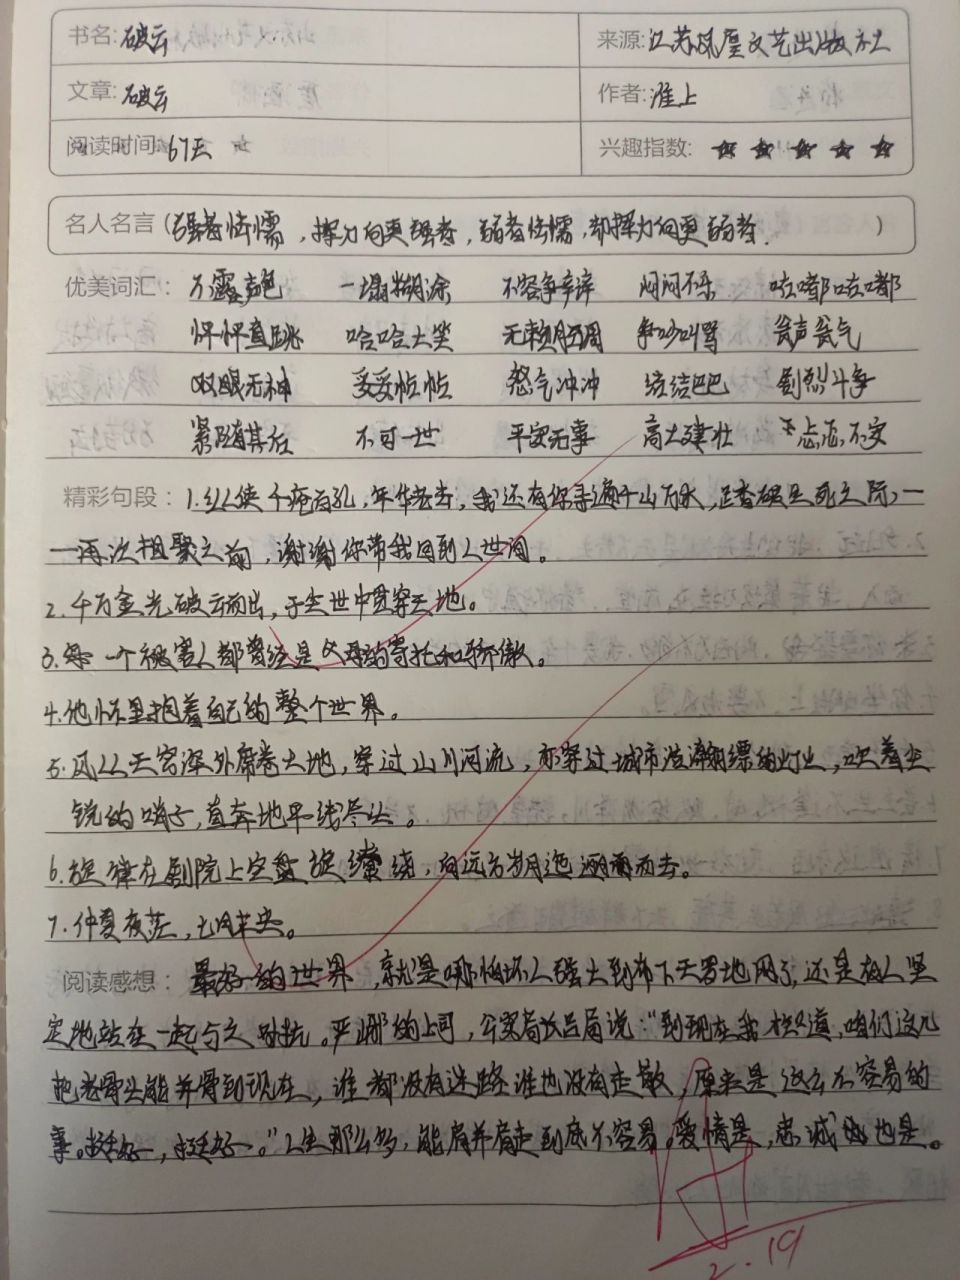 书名: 破云 来源: 江苏凤凰文艺出版社
文章: 破云 作者: 淮上
阅读时间: 67天 兴趣指数: ★ ★ ★ ★ ★
名人名言 (强者怯懦,挥刀向更强者,弱者怯懦,却挥刀向更弱者.
优美词汇: 不露声色 一塌糊涂 不容争辩 闷闷不乐 咕嘟咕嘟
怦怦直跳 哈哈大笑 无赖腔调 争吵叫骂 瓮声瓮气
双眼无神 妥妥帖帖 怒气冲冲 结结巴巴 剧烈斗争
紧随其后 不可一世 平安无事 高大建壮 忐忑不安
精彩句段: 1.纵使千疮百孔,年华老去,我还有你寻遍千山万水,在香碰生死之际,—
—再次相聚之前,谢谢你带我回到人世间。
2.千万金光破云而出,于尘世中贯穿天地。
3.每一个被害人都曾经是父母的寄托和骄傲。
4.他怀里抱着自己的整个世界。
5.风从天穹深外席卷大地,穿过山川河流,亦穿过城市浩瀚缥的灯火,吹着尖
锐的哨子,直奔地平线尽头。
6.旋律在剧院上空盘旋缭绕,向远方岁月迤逦而去。
7.仲夏夜茫,七月未央。
阅读感想: 最好的世界,就是哪怕坏人强大到布下天罗地网了,还是有人坚
定地站在一起与之对抗。严峫的上司,公安局长吕局说:“到现在我才知道,咱们这几
把老骨头能并肩到现在,谁都没有迷路谁也没有走散,原来是这么不容易的
事。挺好,挺好。”人生那么多,能肩并肩走到底不容易。爱情是,忠诚也是。
2.19